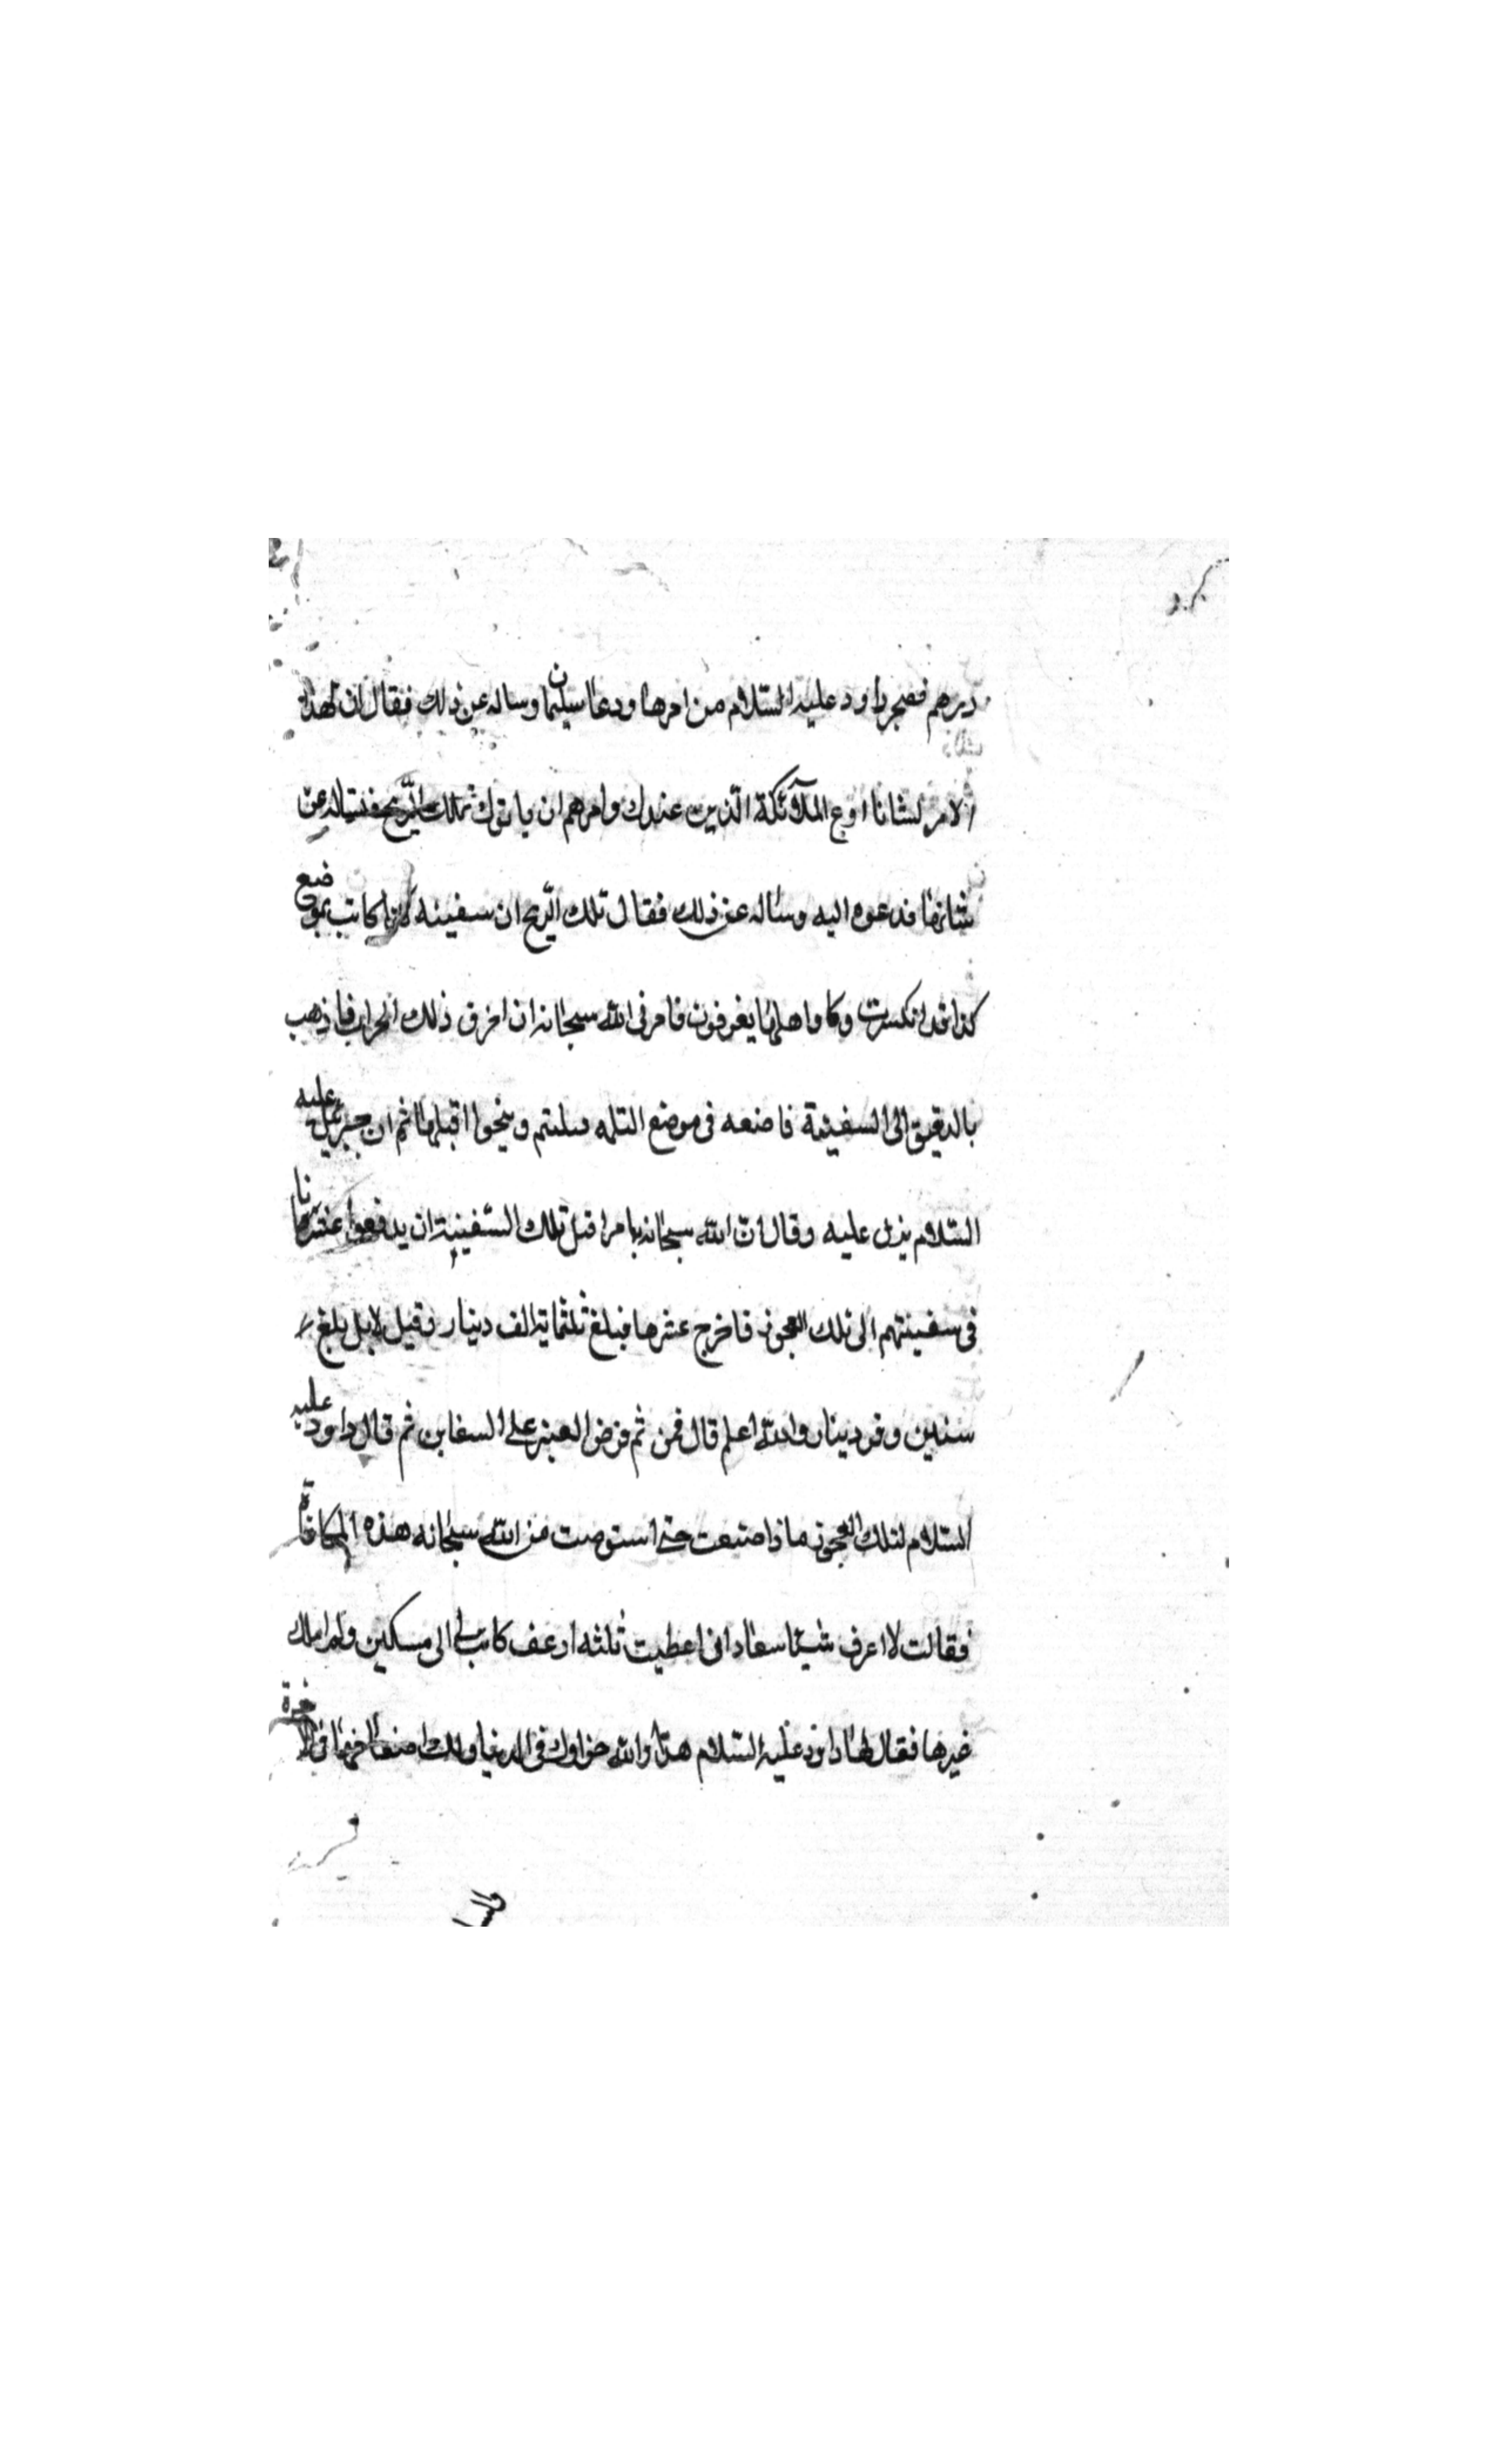 درهم فضجر داود عليه السّلام من امرها ودعا سليمان وساله عن ذلك فقال ان لهذا
الامر لشانا ادع الملآئكة الّذين عندك وامرهم ان ياتوك بملك الرّيح فنساله عن
شانها فدعوه اليه وساله عن ذلك فقال تلك الرّيح ان سفينه كانت بموضع
كذا قد انكسرت وكا واهلها يغرقون فامرنى الله سبحانه ان اخرق ذلك الجراب فاذهب
بالدقيق الى السفينة فاضعه فى موضع الثلمه وينجوا اقبلها ثم ان جبرئيل عليه
السّلام نزل عليه وقال انّ الله سبحانه يامر اهل تلك السّفينة ان يدفعوا عشر ما
فى سفينتهم الى تلك العجوز فاخرج عشرها فبلغ ثلثماية الف دينار وقيل لا بل بلغ
ستين وقر دينار والله اعلم قال فمن ثم فرض العشر على السفاين ثم قال داود عليه
السّلام لتلك العجوز ماذا صنعت حتى استوجبت من الله سبحانه هذه المكافاة
فقالت لا اعرف شيئا انى اعطيت ثلثه ارغف كانت لى الى مسكين ولم املك
غيرها فقال لها داود عليه السّلام هذا والله جزاوك فى الدنيا ولك اضعافها فى الاخرة